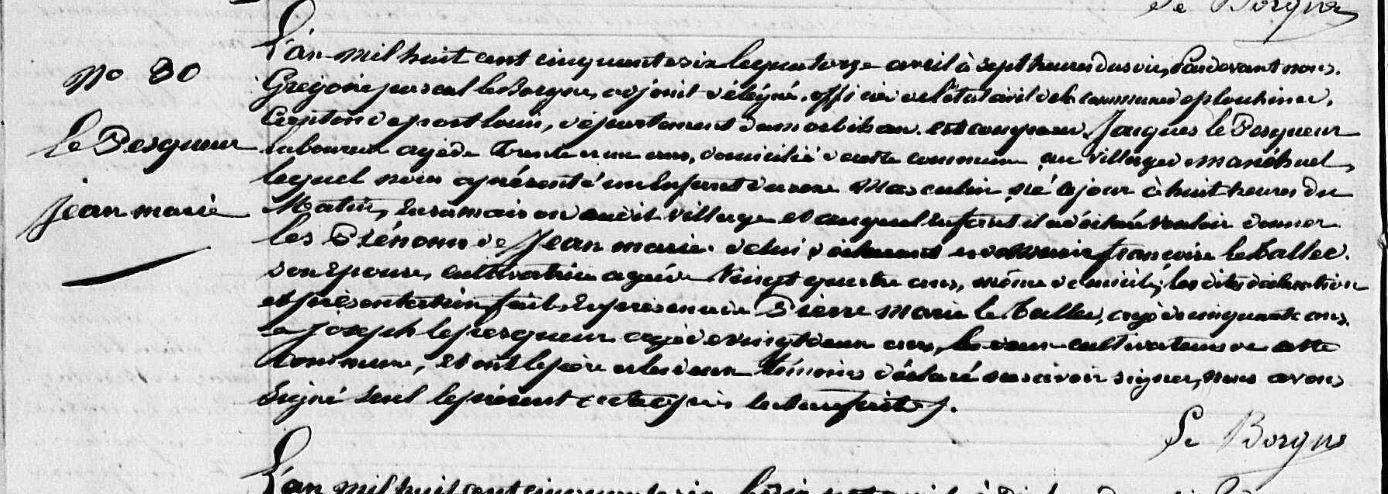 Le Borgne
N° 80
Le Pesqueur
jean marie
L'an mil huit cent cinquante six le quatorze avril à sept heures du soir, Pardevant nous,
Grégoire pascal le Borgne, adjoint délégué, officier de l'état civil de la commune de plouhinec,
Canton de port louis, département du morbihan. est comparu Jacques le Pesqueur
laboureur agé de Trente et un ans, domicilié de cette commune au village de manéhuel,
lequel nous a présenté un Enfant du sexe Masculin, né ce jour à huit heures du
Matin, en sa maison audit village et auquel Enfant il a déclaré vouloir donner
les Prénoms de Jean marie. de lui déclarant et de françoise le tallec.
son Epouse, cultivatrice agée de Vingt quatre ans, même domicile, les dites déclaration
et présentation faites En présence de Pierre Marie le Tallec, agé de cinquante ans,
et Joseph le pesqueur agé de vingt deux ans, les deux cultivateurs de cette
Commune, et ont le père et les deux témoins déclaré ne savoir signer, nous avons
Signé seul le présent acte après lecture faite.
Le Borgne
L'an mil huit cent cinquante six